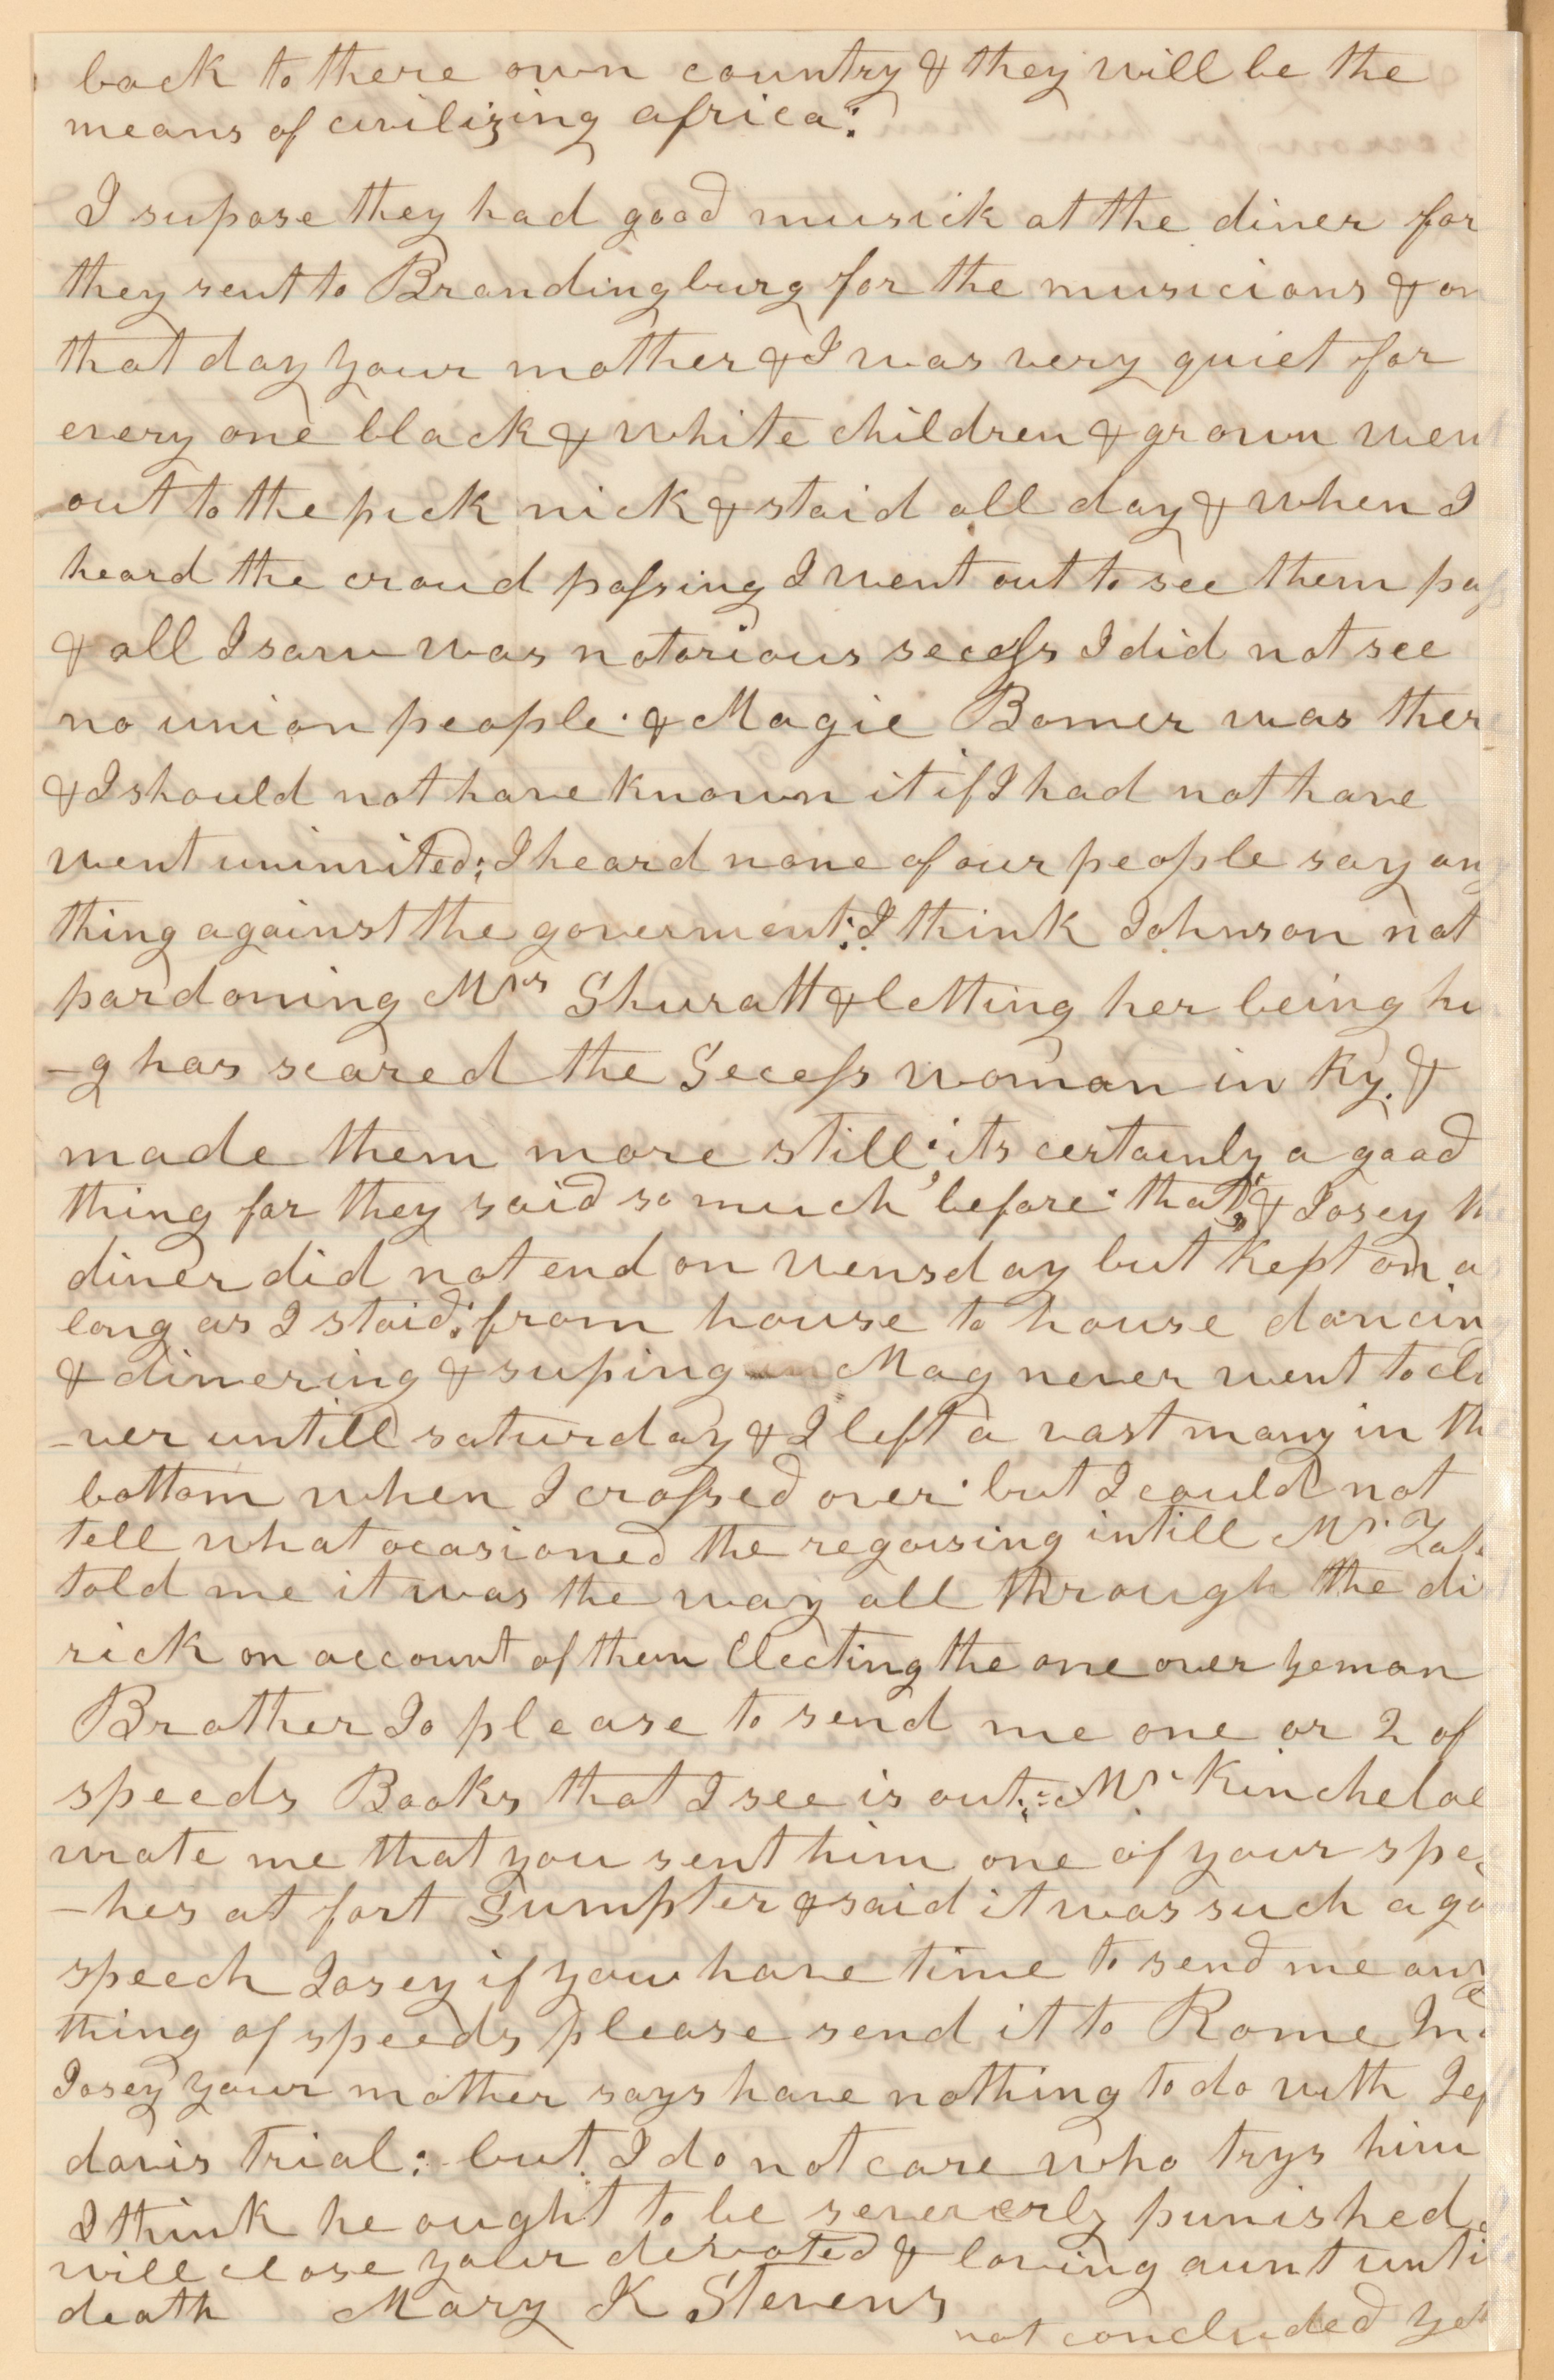 back to there own country & they will be the
means of civilizing africa:
I supose they had good musick at the diner for
they sent to Brandingburg for the musicians & on
that day your mother & I was very quiet for
every one black & white children & grown went
out to the pick nick & staid all day & when I
heard the croud passing I went out to see them pass
& all I saw was notorious secess I did not see
no union people. & Magie Bomer was ther
& I should not have known it if I had not have
went uninvited; I heard none of our people say any
thing against the goverment; I think Johnson not
pardoning Mrs Shuratt & letting her being hu
-g has scared the Secess woman in Ky. &
made them more still; its certainly a good
thing for they said so much before that; & Josey the
diner did not end on wensday but kept on a
long as I staid; from house to house dancing
& dinnering & suping Mag never went to clo
-ver untill saturday & I left a vast many in th
bottom when I crossed over but I could not
tell what ocasioned the regoising intill Mr.
told me it was the way all through the di
rick on account of them Electing the one over yeman
Brother Jo please to send me one or 2 of
speeds Books that I see is out; Mr Kincheloe
wrote me that you sent him one of your spee
-hes at fort Sumpter & said it was such a go
speech Josey if you have time to send me any
thing of speeds please send it to Rome Ind
Josey your mother says have nothing to do with Jef
davis trial; but I do not care who trys him
I think he ought to be severerly punished
will close your devoted & loving aunt unti
death Mary K Stevens
not concluded yet